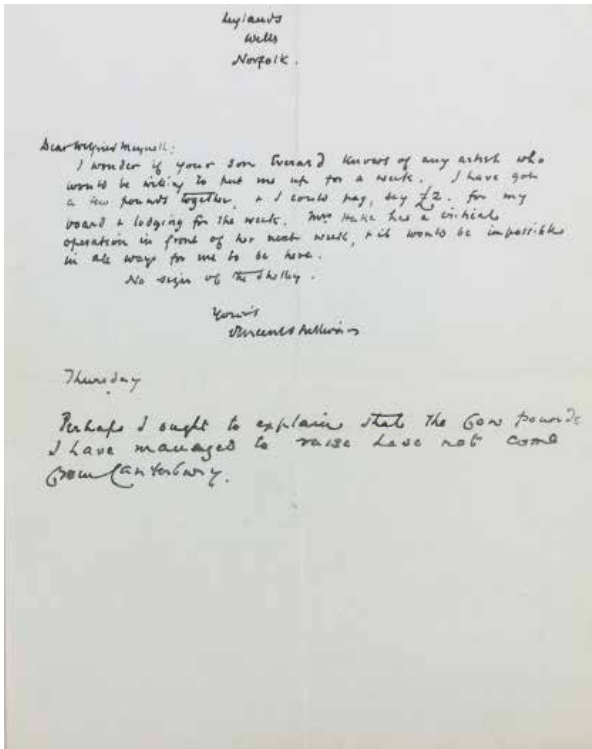 Leylands
Wells
Norfolk.
Dear Wilfrid Meynell:
I wonder if your son Everard knows of any artist who
would be willing to put me up for a week. I have got
a few pounds together, & I could pay, say £2. for my
board & lodging for the week. Mrs Hake has a critical
operation in front of her next week, & it would be impossible
in all ways for me to be here.
No sign of the Shelley.
Yours
Vincent O'Sullivan
Thursday
Perhaps I ought to explain that the few pounds
I have managed to raise have not come
from Canterbury.